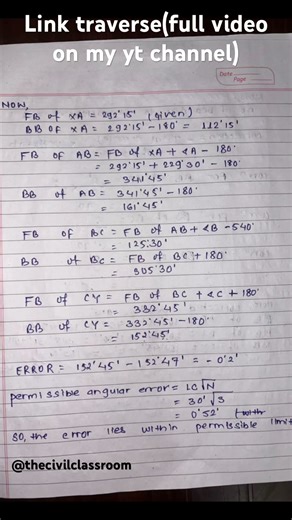 Link traverse(full video
on my yt channel)
Date
Page
NOW,
FB of XA = 292°15' (given)
BB OF XA = 292°15' - 180° = 112°15'
FB OF AB = FB of XA + ∠A - 180°
= 292°15' + 229°30' - 180°
= 341°45'
BB of AB = 341°45' - 180°
= 161°45'
FB of BC = FB of AB + ∠B - 540°
= 125°30'
BB of BC = FB of BC + 180°
= 305°30'
FB of CY = FB of BC + ∠C + 180°
= 332°45'
BB of CY = 332°45' - 180°
= 152°45'
ERROR = 152°45' - 152°47' = - 0°2'
permissible angular error = LC√N
= 30' √3
= 0°52'
SO, the error lies within permissible limit
@thecivilclassroom